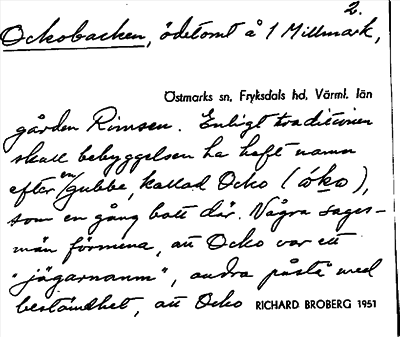 2.
Ockobacken, ödetomt å 1 Millmark,
Östmarks sn, Fryksdals hd, Värml. län
gården Rimsen. Enligt traditionen
skall bebyggelsen ha haft namn
efter en gubbe, kallad Ocko (óko),
som en gång bott där. Några sages-
män förmena, att Ocko var ett
"jägarnamn", andra påstå med
bestämdhet, att Ocko RICHARD BROBERG 1951